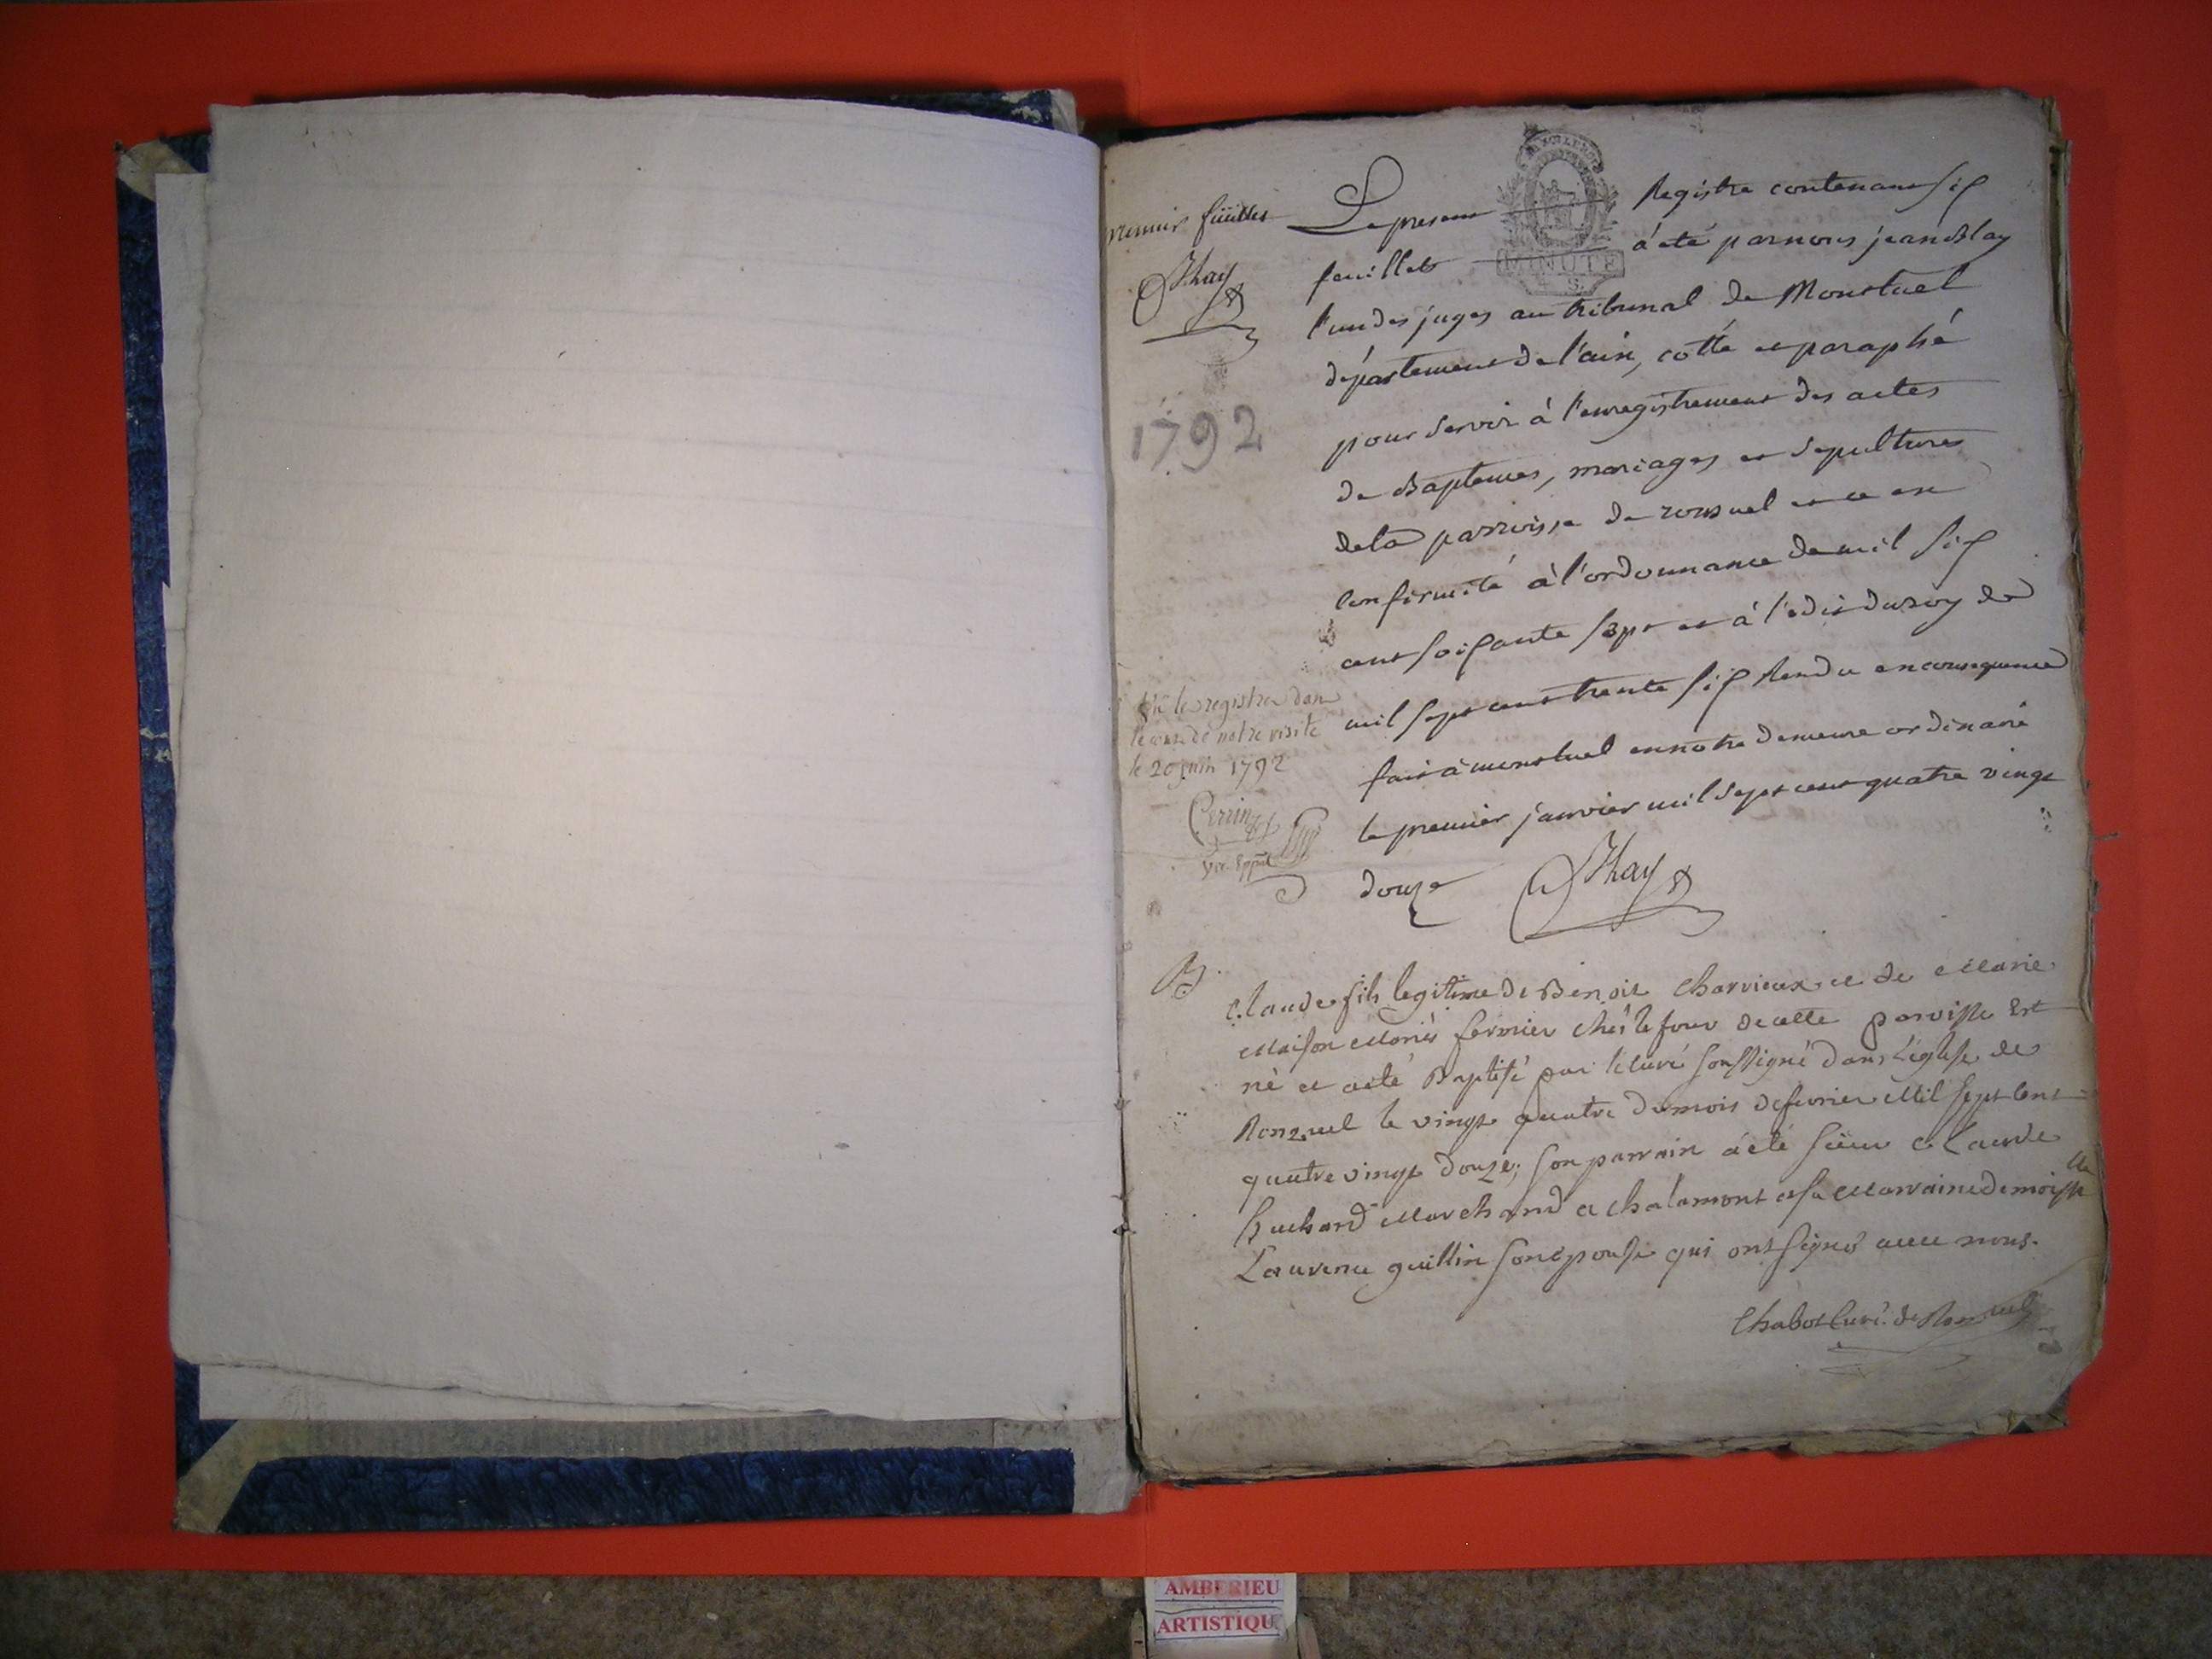 premier feüillet
Le present Registre contenant six
feuillets à eté par nous jean Blay
MINUTE
4 S.
l'un des juges au tribunal de Montluel
département de l'ain, cotté et paraphé
pour servir à l'enregistrement des actes
de Baptemes, mariages et sepultures
de la parroisse de ronzuel et ce en
conformité à l'ordonnance de mil six
cent soixante sept et à l'edit du roy de
mil sept cent trente six Rendu en consequence
fait à montluel en notre demeure ordinaire
le premier janvier mil sept cent quatre vingt
douze
1792
le registre dans
le cours de notre visite
le 20 juin 1792
Perrin
vic. Epp.al
B.
Claude fils legitime de Benoit Charvieux et de Marie
Maison Mariés fermier chés le four de cette parroisse est
né et a eté Baptisé par le curé soussigné dans l'église de
Ronzuel le vingt quatre du mois de fevrier Mil sept cent
quatre vingt douze; son parrain a été sieur Claude
Marchand a Chalamont et sa Marraine demoiselle
Laurence guillin son epouse qui ont signés avec nous.
Chabot Curé de Ronzuel
AMBERIEU
ARTISTIQU